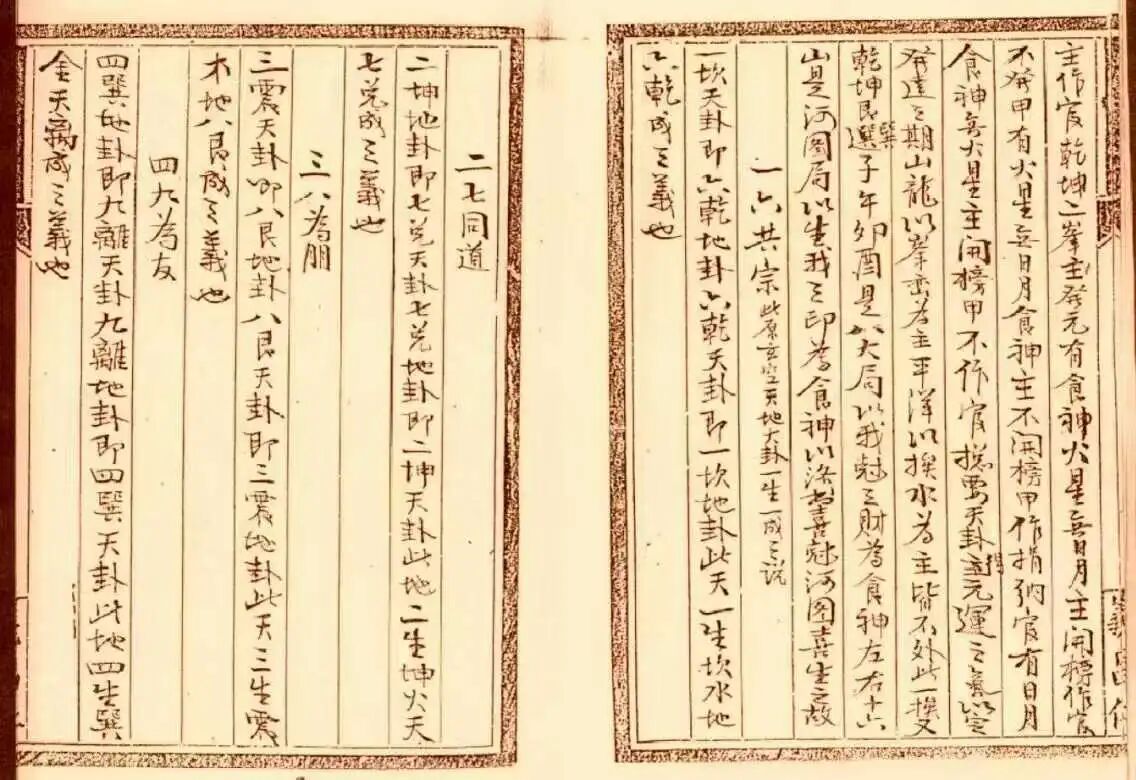 主作官乾坤二峯主發元有食神火星無日月主開榜作官
不發甲有火星無日月食神主不開榜甲作捐納官有日月
食神無火星主開榜甲不作官總要天卦主得元運之氣以定
發達之期山龍以峯巒為主平洋以挨水為主皆不外此一挨又
乾坤艮巽選子午卯酉是八大局以我尅之財為食神左右十六
山是河圖局以生我之印為食神以洛書喜尅河圖喜生之故
一六共宗此原玄空天地大卦一生一成之說
一坎天卦即六乾地卦六乾天卦即一坎地卦此天一生坎水地
六乾成之義也
二七同道
二坤地卦即七兌天卦七兌地卦即二坤天卦此地二生坤火天
七兌成之義也
三八為朋
三震天卦即八艮地卦八艮天卦即三震地卦此天三生震
木地八艮成之義也
四九為友
四巽地卦即九離天卦九離地卦即四巽天卦此地四生巽
金天離成之義也